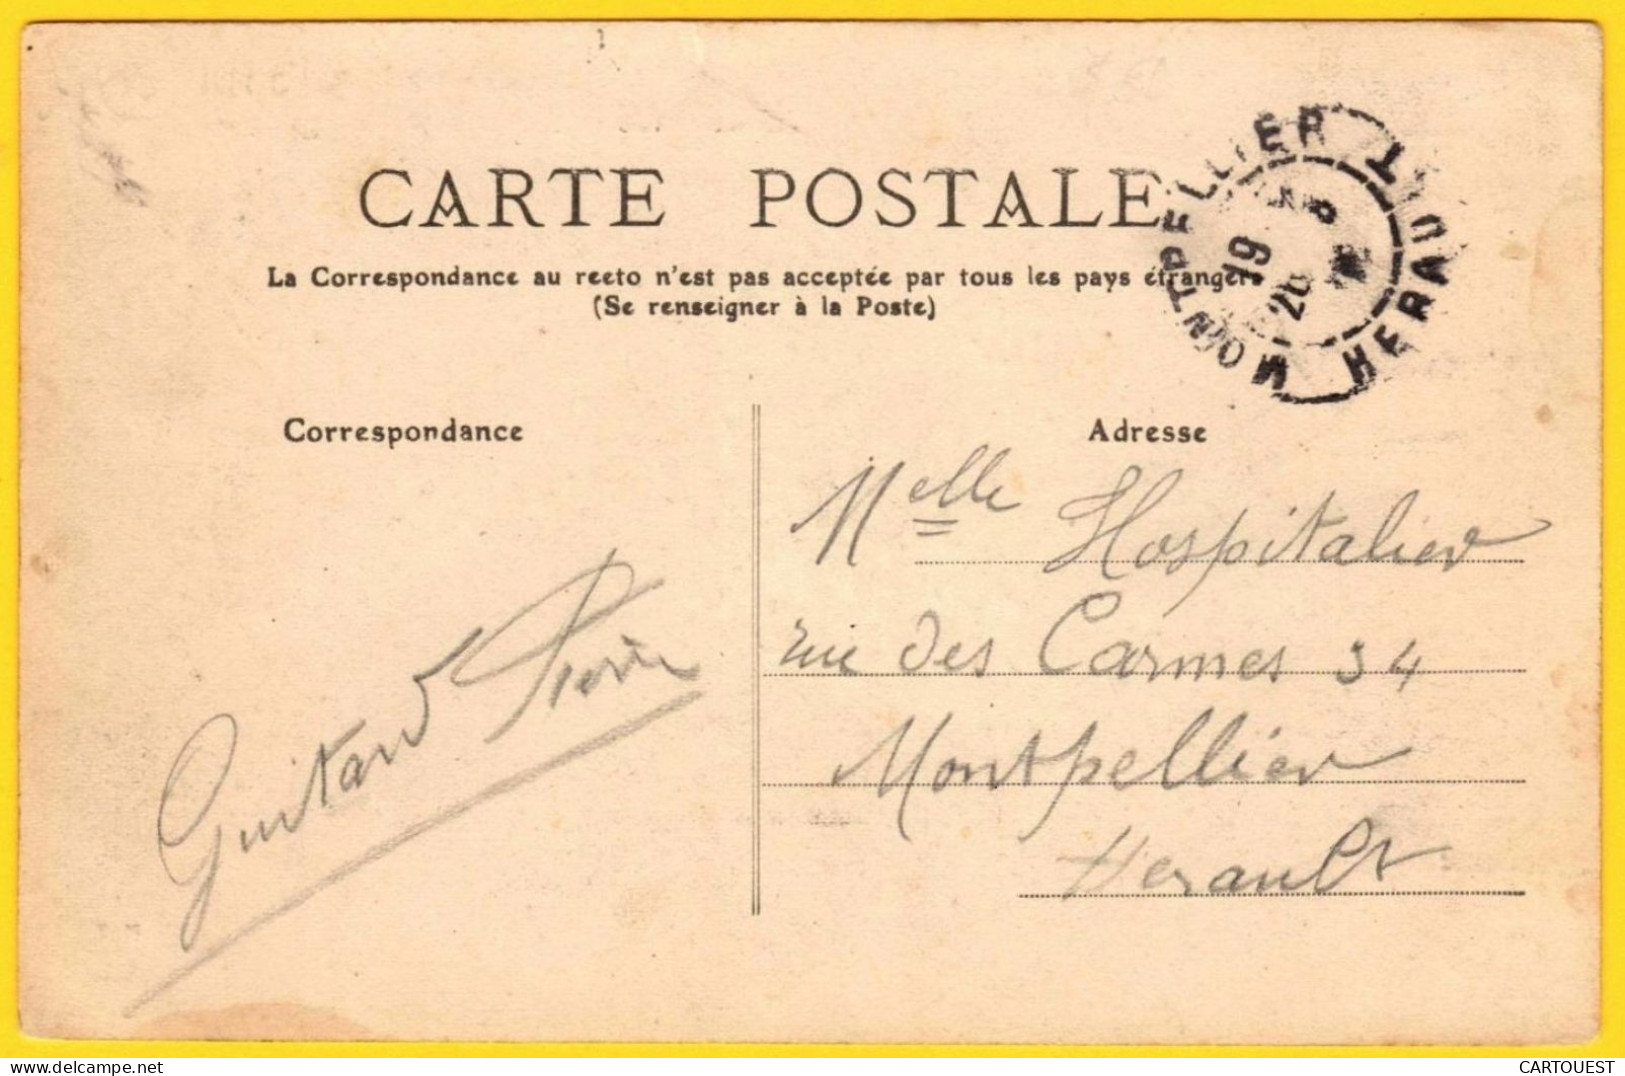 CARTE POSTALE
La Correspondance au recto n'est pas acceptée par tous les pays étrangers
(Se renseigner à la Poste)
MONTPELLIER
HERAULT
19
Correspondance
Adresse
Melle Hospitalier
rue des Carmes 34
Montpellier
Herault
Guitard
delcampe.net
CARTOUEST